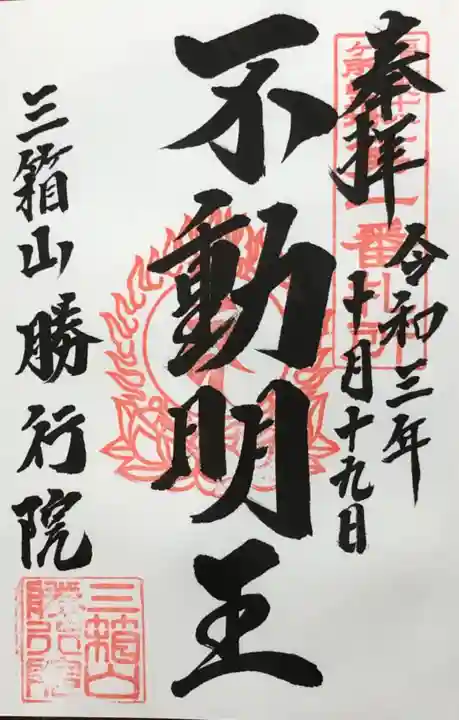 奉拝
令和三年
十月十九日
不動明王
三箱山勝行院
三箱山
勝行院